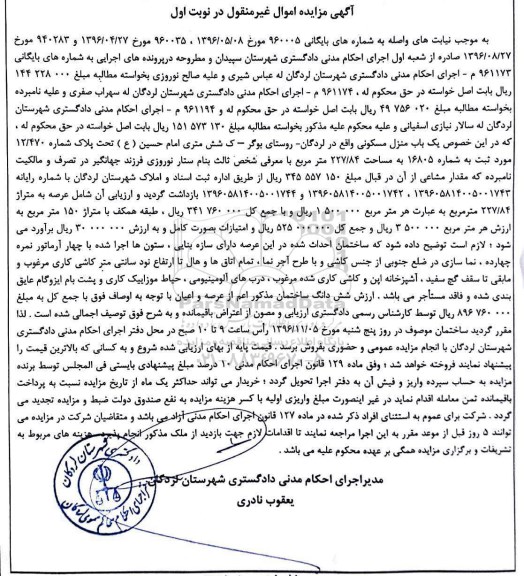 آگهی مزایده اموال غیرمنقول در نوبت اول
به موجب نیابت های واصله به شماره های بایگانی ۹۶۰۰۰۵ مورخ ۱۳۹۶/۰۵/۰۸ ، ۹۶۰۰۳۵ مورخ ۱۳۹۶/۰۴/۲۷ و ۹۴۰۲۸۳ مورخ
۱۳۹۶/۰۸/۲۷ صادره از شعبه اول اجرای احکام مدنی دادگستری شهرستان سپیدان و مطروحه درپرونده های اجرایی به شماره های بایگانی
۹۶۱۱۷۳ م - اجرای احکام مدنی دادگستری شهرستان لردگان له عباس شیری و علیه صالح نوروزی بخواسته مطالبه مبلغ ۰۰۰ ۲۲۸ ۱۴۴
ریال بابت اصل خواسته در حق محکوم له ، ۹۶۱۱۷۴ م - اجرای احکام مدنی دادگستری شهرستان لردگان له سهراب صفری و علیه نامبرده
بخواسته مطالبه مبلغ ۰۲۰ ۷۵۶ ۴۹ ریال بابت اصل خواسته در حق محکوم له و ۹۶۱۱۹۴ م - اجرای احکام مدنی دادگستری شهرستان
لردگان له سالار نیازی اسفیانی و علیه محکوم علیه مذکور بخواسته مطالبه مبلغ ۱۳۰ ۵۷۳ ۱۵۱ ریال بابت اصل خواسته در حق محکوم له ،
که در این خصوص یک باب منزل مسکونی واقع در لردگان- روستای بوگر – ک شش متری امام حسین ( ع ) تحت پلاک شماره ۱۲/۴۷۰
مورد ثبت به شماره ۱۶۸۰۵ به مساحت ۲۲۷/۸۴ متر مربع با معرفی شخص ثالث بنام ستار نوروزی فرزند جهانگیر در تصرف و مالکیت
نامبرده که مقدار مشاعی از آن در قبال مبلغ ۱۵۰ ۵۵۷ ۳۴۵ ریال از طریق اداره ثبت اسناد و املاک شهرستان لردگان با شماره رایانه
۱۳۹۶۰۵۸۱۴۰۰۵۰۰۱۷۴۳ ، ۱۳۹۶۰۵۸۱۴۰۰۵۰۰۱۷۴۲ و ۱۳۹۶۰۵۸۱۴۰۰۵۰۰۱۷۴۴ بازداشت گردید و ارزیابی آن شامل عرصه به متراژ
۲۲۷/۸۴ مترمربع به عبارت هر متر مربع ۰۰۰ ۵۰۰ ۱ ریال و با جمع کل ۰۰۰ ۷۶۰ ۳۴۱ ریال ، طبقه همکف با متراژ ۱۵۰ متر مربع به
ارزش هر متر مربع ۰۰۰ ۵۰۰ ۳ ریال و جمع کل ۰۰۰ ۰۰۰ ۵۲۵ ریال و امتیازات بصورت کامل و به ارزش ۰۰۰ ۰۰۰ ۳۰ ریال برآورد می
شود ؛ لازم است توضیح داده شود که ساختمان احداث شده در این عرصه دارای سازه بنایی ، ستون ها اجرا شده با چهار آرماتور نمره
چهارده ، نما سازی در ضلع جنوبی از جنس کاشی و با طرح آجر نما ، تمام اتاق ها و هال تا ارتفاع نود سانتی متر کاشی کاری مرغوب و
مابقی تا سقف گچ سفید ، آشپزخانه اپن و کاشی کاری شده مرغوب ، درب های آلومینیومی ، حیاط موزاییک کاری و پشت بام ایزوگام عایق
بندی شده و فاقد مستأجر می باشد . ارزش شش دانگ ساختمان مذکور اعم از عرصه و اعیان با توجه به اوصاف فوق با جمع کل به مبلغ
۰۰۰ ۷۶۰ ۸۹۶ ریال توسط کارشناس رسمی دادگستری ارزیابی و مصون از اعتراض باقیمانده و به شرح فوق توصیف اجمالی شده است . لذا
مقرر گردید ساختمان موصوف در روز پنج شنبه مورخ ۱۳۹۶/۱۱/۰۵ رأس ساعت ۹ تا ۱۰ صبح در محل دفتر اجرای احکام مدنی دادگستری
شهرستان لردگان با انجام مزایده عمومی و حضوری بفروش برسد . قیمت پایه از بهای ارزیابی شده شروع و به کسانی که بالاترین قیمت را
پیشنهاد نمایند فروخته خواهد شد ؛ وفق ماده ۱۲۹ قانون اجرای احکام مدنی ۱۰ درصد مبلغ پیشنهادی بایستی فی المجلس توسط برنده
مزایده به حساب سپرده واریز و فیش آن به دفتر اجرا تحویل گردد ؛ خریدار می تواند حداکثر یک ماه از تاریخ مزایده نسبت به پرداخت
باقیمانده ثمن معامله اقدام نماید در غیر اینصورت مبلغ واریزی اولیه با کسر هزینه مزایده به نفع صندوق دولت ضبط و مزایده تجدید می
گردد . شرکت برای عموم به استثنای افراد ذکر شده در ماده ۱۲۷ قانون اجرای احکام مدنی آزاد می باشد و متقاضیان شرکت در مزایده می
توانند ۵ روز قبل از موعد مقرر به این اجرا مراجعه نمایند تا اقدامات لازم جهت بازدید از ملک مذکور انجام پذیرد. هزینه های مربوط به
تشریفات و برگزاری مزایده همگی بر عهده محکوم علیه می باشد .
مدیراجرای احکام مدنی دادگستری شهرستان لردگان
یعقوب نادری